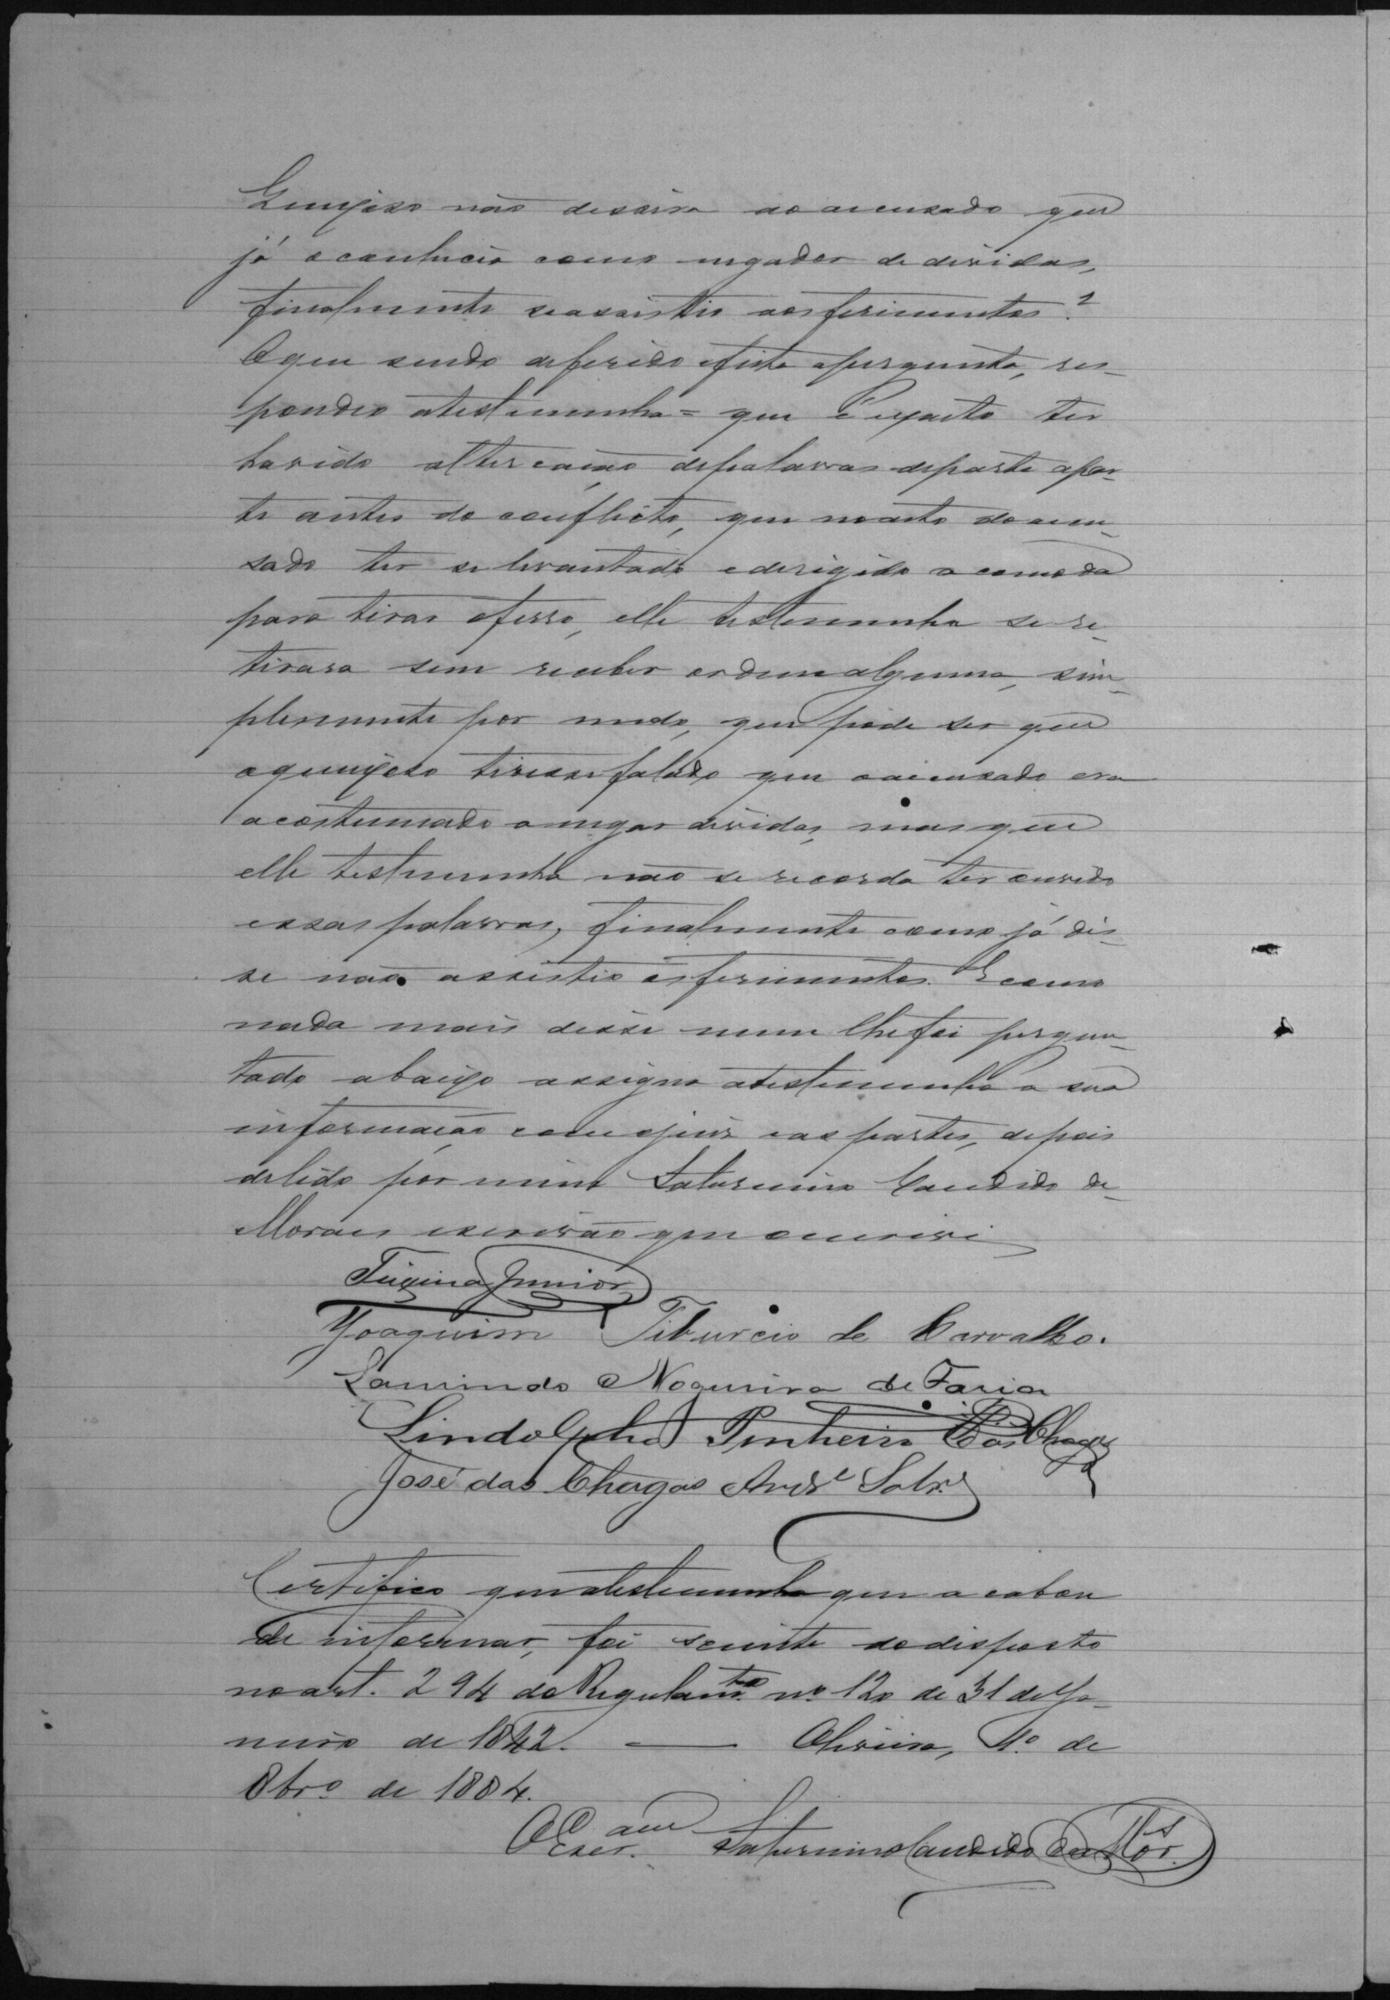 queixoso não dissera ao accusado que
já o conhecia como negador de dividas,
finalmente se assistio aos ferimentos?
O que sendo deferido e feita a pergunta, res-
pondeo a testemunha = que é exacto ter
havido altercação de palavras de parte a par-
te antes do conflicto, que no acto do accu-
sado ter se levantado e dirigido a comoda
para tirar o ferro, elle testemunha se re-
tirara sem receber ordem alguma, sim-
plesmente por medo, que pode ser que
o queixoso tivesse falado que o accusado era
acostumado a negar dividas, mas que
elle testemunha não se recorda ter ouvido
essas palavras, finalmente como já dis-
se não assistio os ferimentos. E como
nada mais disse nem lhe foi pergun-
tado abaixo assigna a testemunha a sua
informação com o juiz e as partes, depois
de lido por mim Saturnino Candido de
Moraes escrivão que o escrevi
Junior
Joaquim Tiburcio de Carvalho.
Laurindo Nogueira de Faria
Lindolpho Pinheiro das Chagas
José das Chagas Andr.e Sobr.o
Certifico que a testemunha que acabou
de informar, foi sciente do disposto
no art. 294 do Regulam.to nº 120 de 31 de Ja-
neiro de 1842. — Oliveira, 1º. de
8brº de 1884.
O Escr.am Saturnino Candido de Mor.s